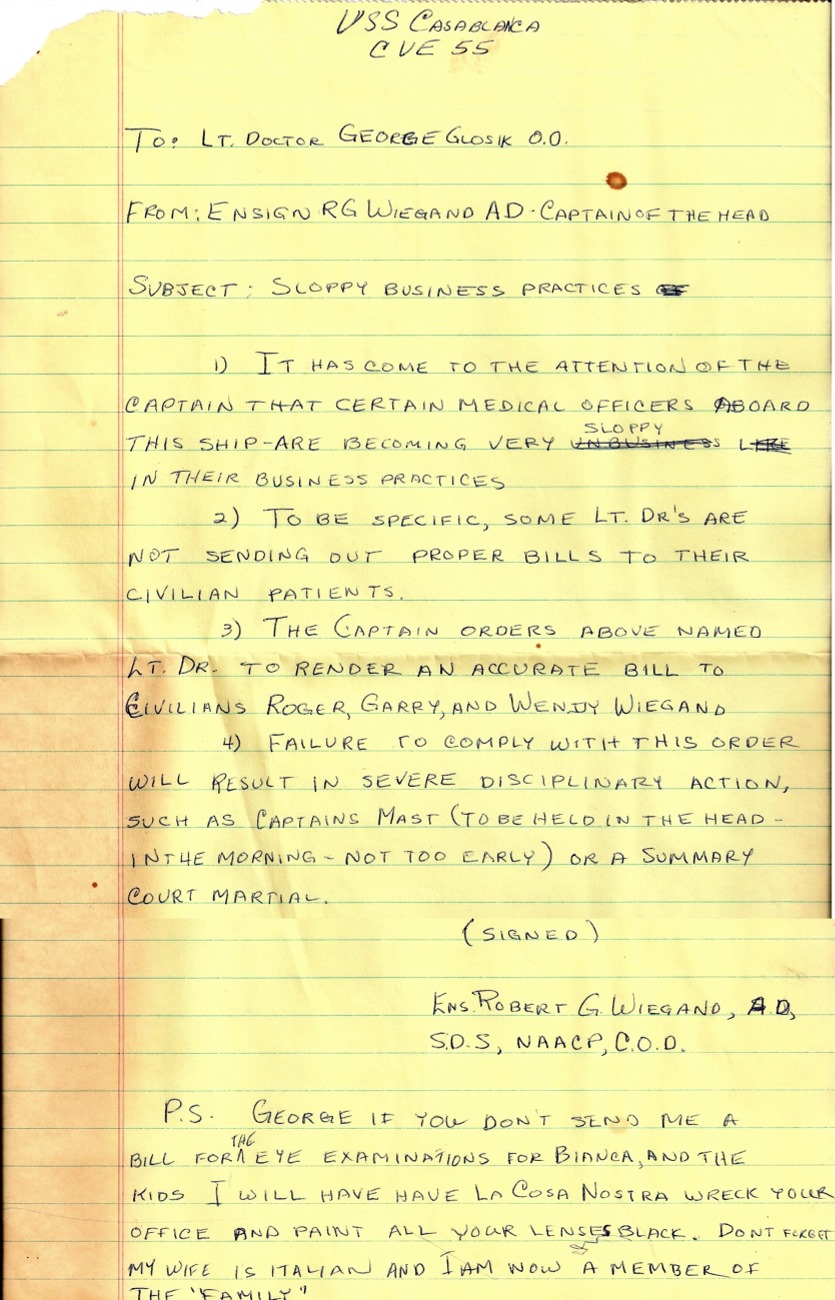 USS CASABLANCA
CVE 55
TO: LT. DOCTOR GEORGE GLOSIK O.D.
FROM: ENSIGN RG WIEGAND AD - CAPTAIN OF THE HEAD
SUBJECT: SLOPPY BUSINESS PRACTICES
1) IT HAS COME TO THE ATTENTION OF THE
CAPTAIN THAT CERTAIN MEDICAL OFFICERS ABOARD
THIS SHIP-ARE BECOMING VERY SLOPPY
IN THEIR BUSINESS PRACTICES
2) TO BE SPECIFIC, SOME LT. DR'S ARE
NOT SENDING OUT PROPER BILLS TO THEIR
CIVILIAN PATIENTS.
3) THE CAPTAIN ORDERS ABOVE NAMED
LT. DR. TO RENDER AN ACCURATE BILL TO
CIVILIANS ROGER, GARRY, AND WENDY WIEGAND
4) FAILURE TO COMPLY WITH THIS ORDER
WILL RESULT IN SEVERE DISCIPLINARY ACTION,
SUCH AS CAPTAINS MAST (TO BE HELD IN THE HEAD -
IN THE MORNING - NOT TOO EARLY) OR A SUMMARY
COURT MARTIAL.
(SIGNED)
ENS. ROBERT G. WIEGAND, A.D.,
S.D.S, NAACP, C.O.D.
P.S. GEORGE IF YOU DON'T SEND ME A
BILL FOR THE EYE EXAMINATIONS FOR BIANCA, AND THE
KIDS I WILL HAVE HAVE LA COSA NOSTRA WRECK YOUR
OFFICE AND PAINT ALL YOUR LENSES BLACK. DONT FORGET
MY WIFE IS ITALIAN AND I AM NOW A MEMBER OF
THE "FAMILY"